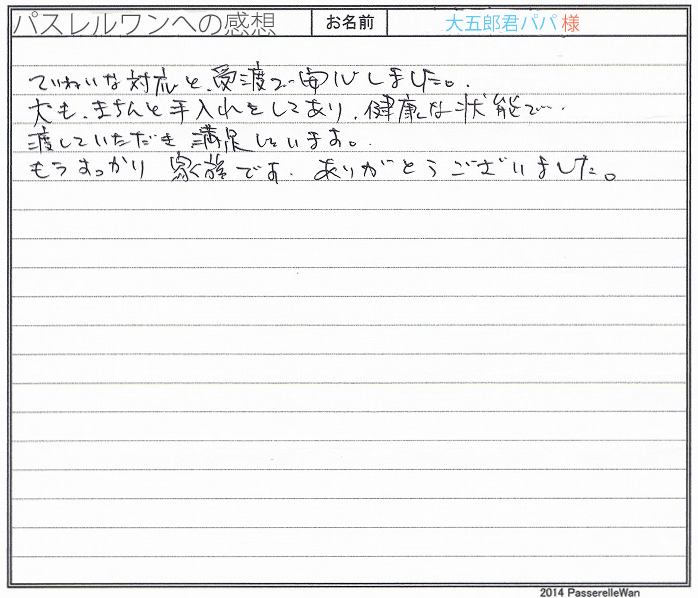 パスレルワンへの感想 お名前 大五郎君パパ 様
ていねいな対応と、受渡で安心しました。
犬も、きちんと手入れをしてあり、健康な状態で
渡していただき満足しています。
もうすっかり家族です。ありがとうございました。
2014 PasserelleWan